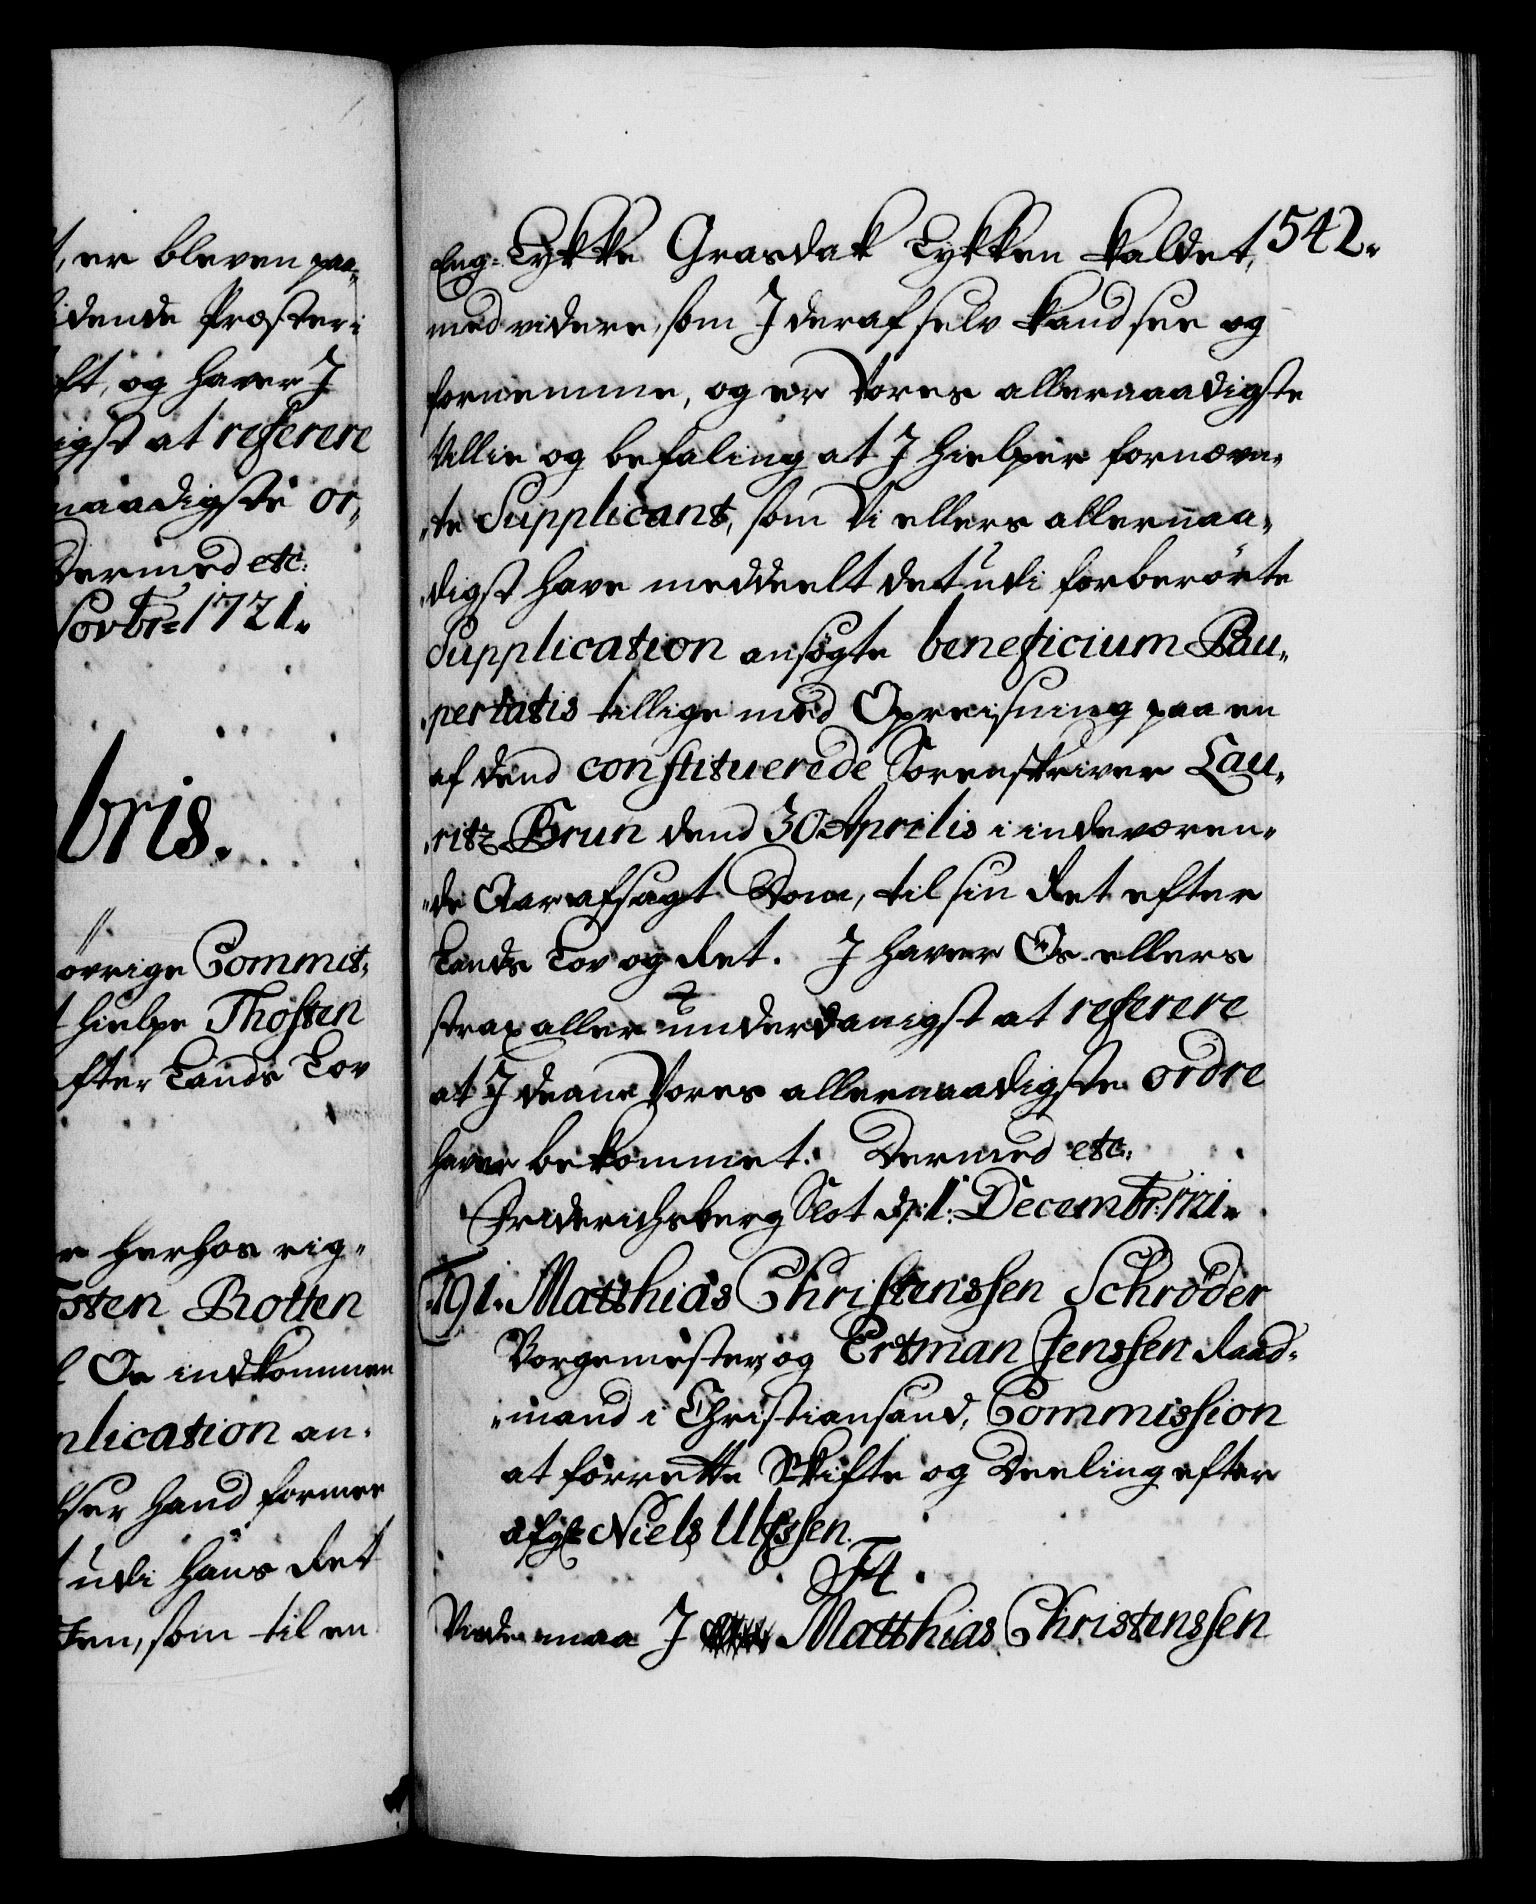 t, er bleven paa-
idende Præsteri
ft, og haver I
igst at referere
naadigste or,
Dermed etc:
Novbr: 1721.
bris.
øvrige Commit,
t hielpe Thosten
efter Lands Lov
er herhos rig,
sten Rotten
l Os indkommen
plication an,
ser hand former
t udi hans Ret
ten, som til en
542.
Eng-Lykke Grasdak Lykken kaldet,
med videre, som I deraf selv kand see og
fornemme, og er Vores allernaadigste
Villie og befaling at I hielper fornævn,
,,te Supplicant, som Vi ellers allernaa,
,,digst have meddeelt det udi forberörte
Supplication ansøgte beneficium Pau,
,,pertatis tillige med Opreisning paa en
af dend constituerede Sorenskriver Lau,
,,ritz Brun dend 30 Aprilis i indeværen,
,,de Aar afsagt Dom, til sin Ret efter
Lands Lov og Ret. I haver Os ellers
strax allerunderdanigst at referere
at I denne Vores allernaadigste ordre
haver bekommet. Dermed etc.
Friderichsberg Slot d: 1. Decembr: 1721.
191. Matthias Christenssen Schrøder
Borgemester, og Ertman Jenssen Raad,
,,mand i Christiansand, Commission
at forrette Skifte og Deeling efter
afg: Niels Ulfssen.
F4
Viide maa I Matthias Christenssen